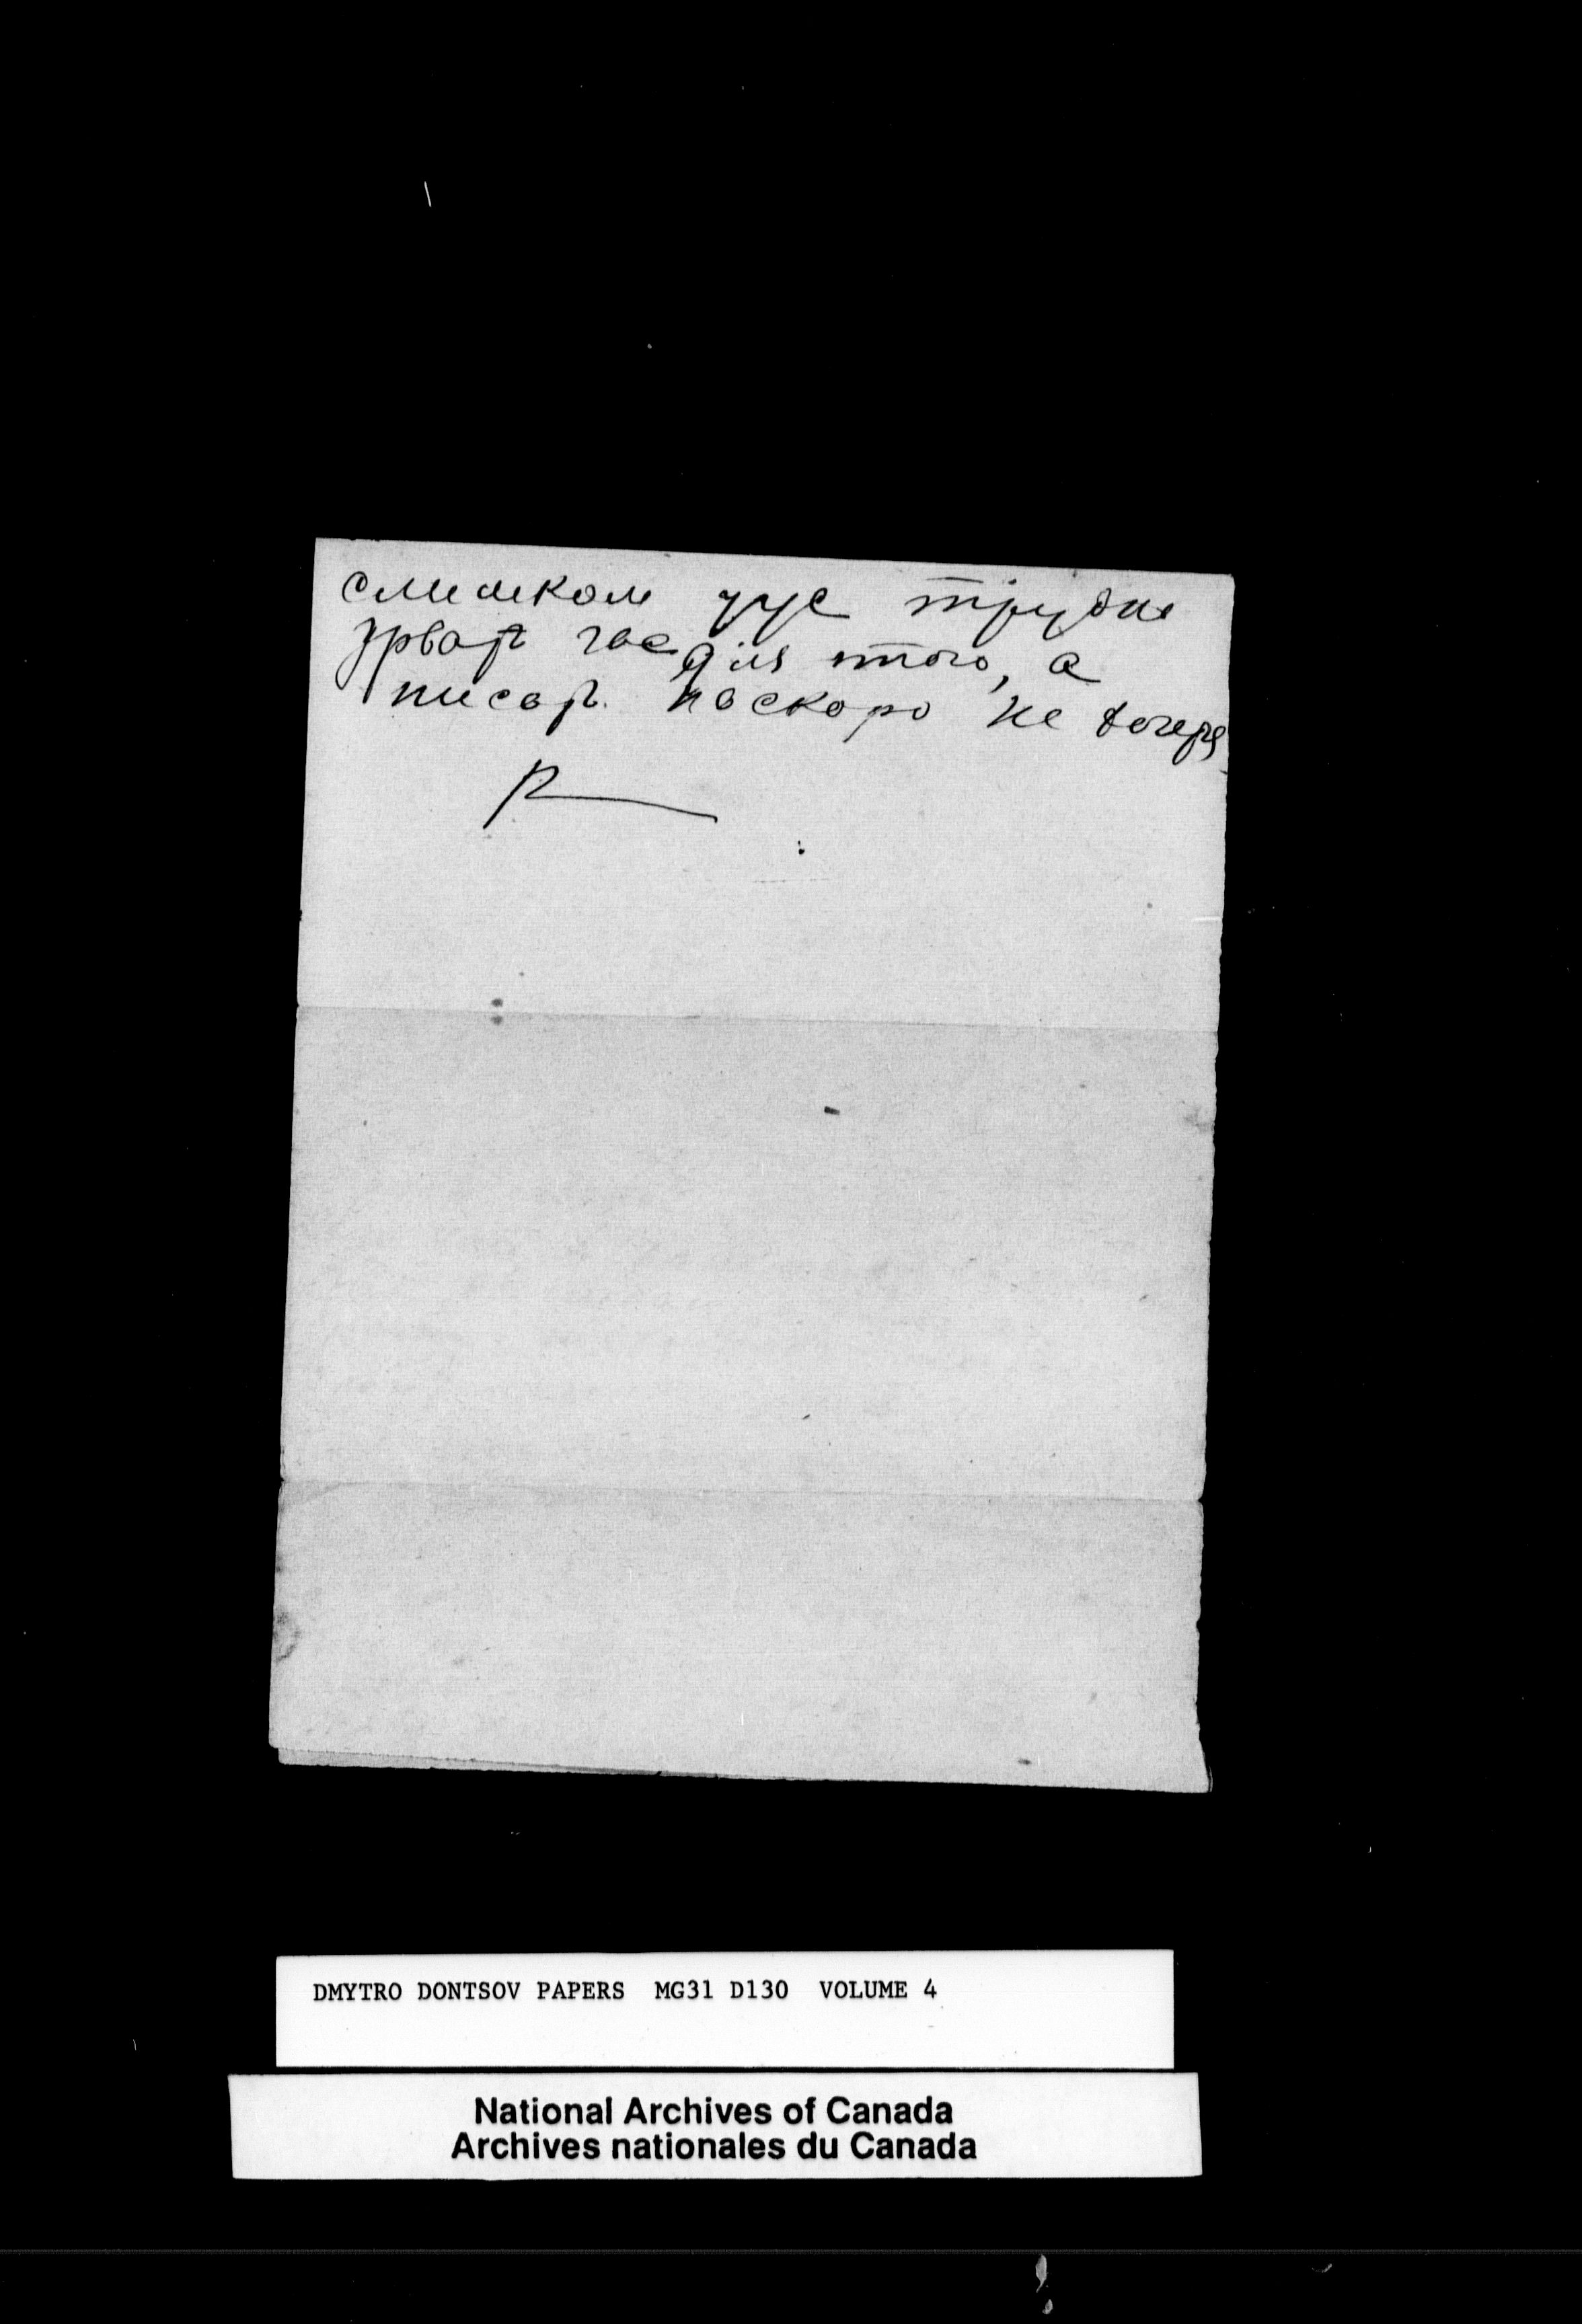 слишком дуже трудно
урвать час для того, а
писать наскоро не
R
DMYTRO DONTSOV PAPERS MG31 D130 VOLUME 4
National Archives of Canada
Archives nationales du Canada